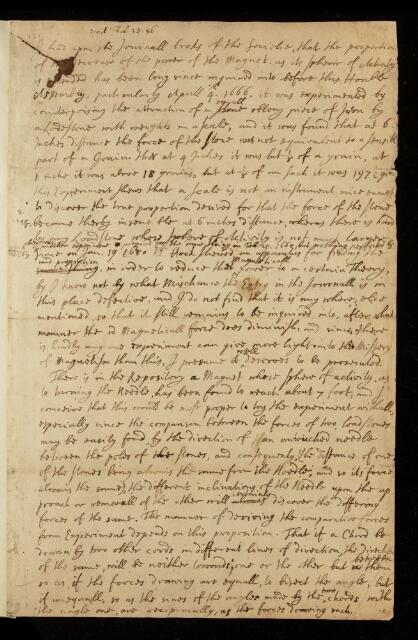 read Feb 23: 86
I find upon the Journall books of the Societie, that the proportion
of the decrease of the power of the Magnet, as its spheir of Activity
is extended has been long since inquired into before this Honble
Assembly, particularly Aprill 1666, it was experimented by
counterpoising the attraction of a small stone oblong piece of Iron by
a Loadstone with weights in a scale, and it was found that at 6
Inches distance the force of the stone was not equivalent to a sensible
part of a Grain that at 4 Inches it was but of a grain, at
1 inche it was above 18 grains, but at of an Inch it was 197 grains
this Experiment shews that a scale is not an instrument nice enough
to discover the true proportion desired for that the force of the stone
became therby insensible at 6 inches distance, wheras there is hard
any Load stone whose sphere of Activity is not much larger
since on Jan. 19 1680 Mr Hook shewed an apparatus for finding the
same thing, in order to reduce that power to a certain Theory,
by I know not by what Mischance the Entry in the Journall is in
this place defective, and I do not find that it is any where else
mentioned, so that it still remains to be inquired into, after what
manner the sd Magneticall force does diminish: and since there
is hardly any one experiment can give more light into the Mistery
of Magnetism than this, I presume it well deserves to be prosecuted.
There is in the Repository a Magnet whose sphere of activity, as
to turning the Needle has been found to reach about 7 foot, and I
conceive that this would be most proper to try the experiment withall,
especially since the comparison between the forces of two loadstones
may be easily found by the direction of an untouched needle
between the poles of the stones, and consequently the distance of one
of the stones being alwais the same from the Needle, and so its force
alwais the same, the different inclinations of the Needle upon the ap
proach or removall of the other will certainly discover the differing
forces of the same. The manner of deriving the comparative forces
from Experiment depends on this proposition. That if a Chord be
drawn by two other cords, in different lines of direction, the direction
of the same, will be neither towards one or the other but between them
so as if the forces drawing are equall, to bisect the angle, but
if unequall, so as the sines of the angles made by the two chords with
the single one, are reciprocally, as the forces drawing each.